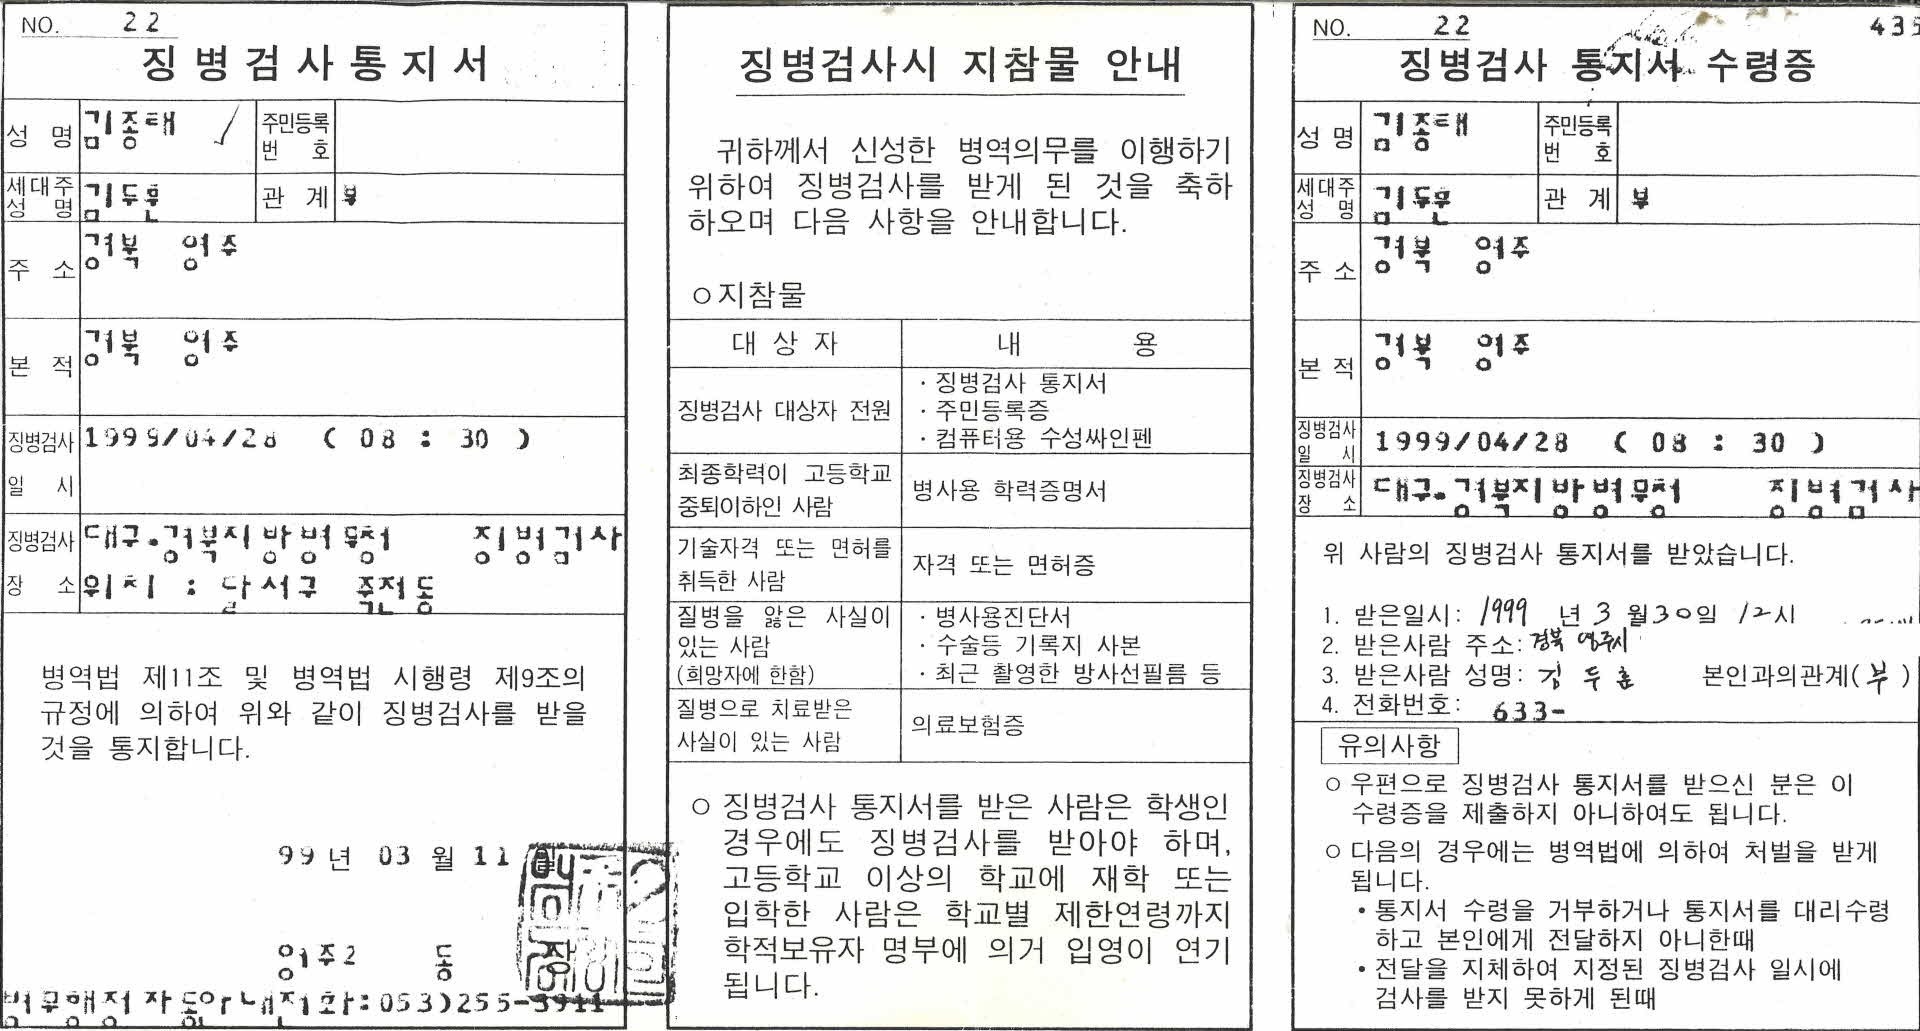 NO. 22
징병검사통지서
성 명 김종태
주민등록 번 호
세대주 성 명 김두훈
관 계 부
주 소 경북 영주
본 적 경북 영주
징병검사 일 시 1999/04/28 ( 08 : 30 )
징병검사 장 소 대구.경북지방병무청 징병검사
위치 : 달서구
병역법 제11조 및 병역법 시행령 제9조의
규정에 의하여 위와 같이 징병검사를 받을
것을 통지합니다.
99 년 03 월 11
영주2 동 장
병무행정자동안내전화:053)255-3911
징병검사시 지참물 안내
귀하께서 신성한 병역의무를 이행하기
위하여 징병검사를 받게 된 것을 축하
하오며 다음 사항을 안내합니다.
○지참물
대 상 자 내 용
징병검사 대상자 전원
· 징병검사 통지서
· 주민등록증
· 컴퓨터용 수성싸인펜
최종학력이 고등학교
중퇴이하인 사람
병사용 학력증명서
기술자격 또는 면허를
취득한 사람
자격 또는 면허증
질병을 앓은 사실이
있는 사람
(희망자에 한함)
· 병사용진단서
· 수술등 기록지 사본
· 최근 촬영한 방사선필름 등
질병으로 치료받은
사실이 있는 사람
의료보험증
○ 징병검사 통지서를 받은 사람은 학생인
경우에도 징병검사를 받아야 하며,
고등학교 이상의 학교에 재학 또는
입학한 사람은 학교별 제한연령까지
학적보유자 명부에 의거 입영이 연기
됩니다.
NO. 22 435
징병검사 통지서 수령증
성 명 김종태
주민등록 번 호
세대주 성 명 김두훈
관 계 부
주 소 경북 영주
본 적 경북 영주
징병검사 일 시 1999/04/28 ( 08 : 30 )
징병검사 장 소 대구.경북지방병무청 징병검사
위 사람의 징병검사 통지서를 받았습니다.
1. 받은일시: 1999 년 3 월 30일 12시
2. 받은사람 주소: 경북 영주시
3. 받은사람 성명: 김두훈 본인과의관계(부)
4. 전화번호: 633-
유의사항
○ 우편으로 징병검사 통지서를 받으신 분은 이
수령증을 제출하지 아니하여도 됩니다.
○ 다음의 경우에는 병역법에 의하여 처벌을 받게
됩니다.
• 통지서 수령을 거부하거나 통지서를 대리수령
하고 본인에게 전달하지 아니한때
• 전달을 지체하여 지정된 징병검사 일시에
검사를 받지 못하게 된때